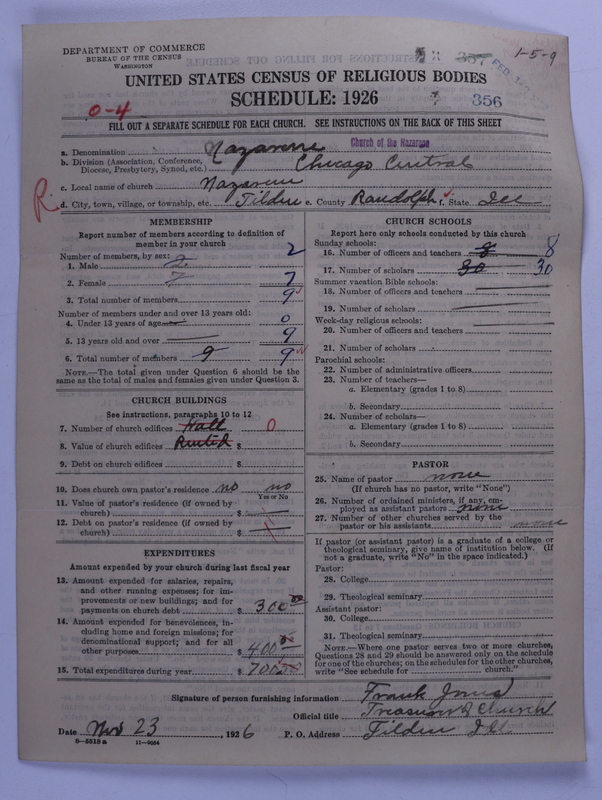 DEPARTMENT OF COMMERCE
BUREAU OF THE CENSUS
WASHINGTON
357
1-5-9
UNITED STATES CENSUS OF RELIGIOUS BODIES
SCHEDULE: 1926
0-4
356
FILL OUT A SEPARATE SCHEDULE FOR EACH CHURCH. SEE INSTRUCTIONS ON THE BACK OF THIS SHEET
a. Denomination Nazarene Church of the Nazarene
b. Division (Association, Conference, Diocese, Presbytery, Synod, etc.) Chicago Central
c. Local name of church Nazarene
R. d. City, town, village, or township, etc. Tilden e. County Randolph f. State Ill
MEMBERSHIP
Report number of members according to definition of
member in your church
Number of members, by sex:
1. Male 2 2
2. Female 7 7
3. Total number of members 9
Number of members under and over 13 years old:
4. Under 13 years of age 0
5. 13 years old and over 9
6. Total number of members 9 9
NOTE.—The total given under Question 6 should be the
same as the total of males and females given under Question 3.
CHURCH BUILDINGS
See instructions, paragraphs 10 to 12
7. Number of church edifices Hall 0
8. Value of church edifices Rented $
9. Debt on church edifices $
10. Does church own pastor's residence no no
Yes or No
11. Value of pastor's residence (if owned by
church) $
12. Debt on pastor's residence (if owned by
church) $
EXPENDITURES
Amount expended by your church during last fiscal year
13. Amount expended for salaries, repairs,
and other running expenses; for im-
provements or new buildings; and for
payments on church debt $ 300 00
14. Amount expended for benevolences, in-
cluding home and foreign missions; for
denominational support; and for all
other purposes $ 400
15. Total expenditures during year $ 700
CHURCH SCHOOLS
Report here only schools conducted by this church
Sunday schools:
16. Number of officers and teachers 8 8
17. Number of scholars 30 30
Summer vacation Bible schools:
18. Number of officers and teachers
19. Number of scholars
Week-day religious schools:
20. Number of officers and teachers
21. Number of scholars
Parochial schools:
22. Number of administrative officers
23. Number of teachers—
a. Elementary (grades 1 to 8)
b. Secondary
24. Number of scholars—
a. Elementary (grades 1 to 8)
b. Secondary
PASTOR
25. Name of pastor none
(If church has no pastor, write "None")
26. Number of ordained ministers, if any, em-
ployed as assistant pastors none
27. Number of other churches served by the
pastor or his assistants none
If pastor (or assistant pastor) is a graduate of a college or
theological seminary, give name of institution below. (If
not a graduate, write "No" in the space indicated.)
Pastor:
28. College
29. Theological seminary
Assistant pastor:
30. College
31. Theological seminary
NOTE.—Where one pastor serves two or more churches,
Questions 28 and 29 should be answered only on the schedule
for one of the churches; on the schedules for the other churches,
write "See schedule for church."
Signature of person furnishing information Frank Jones
Official title Treasurer of Church
Date Nov 23, 1926 P. O. Address Tilden Ill
8-5518 a 11-9034